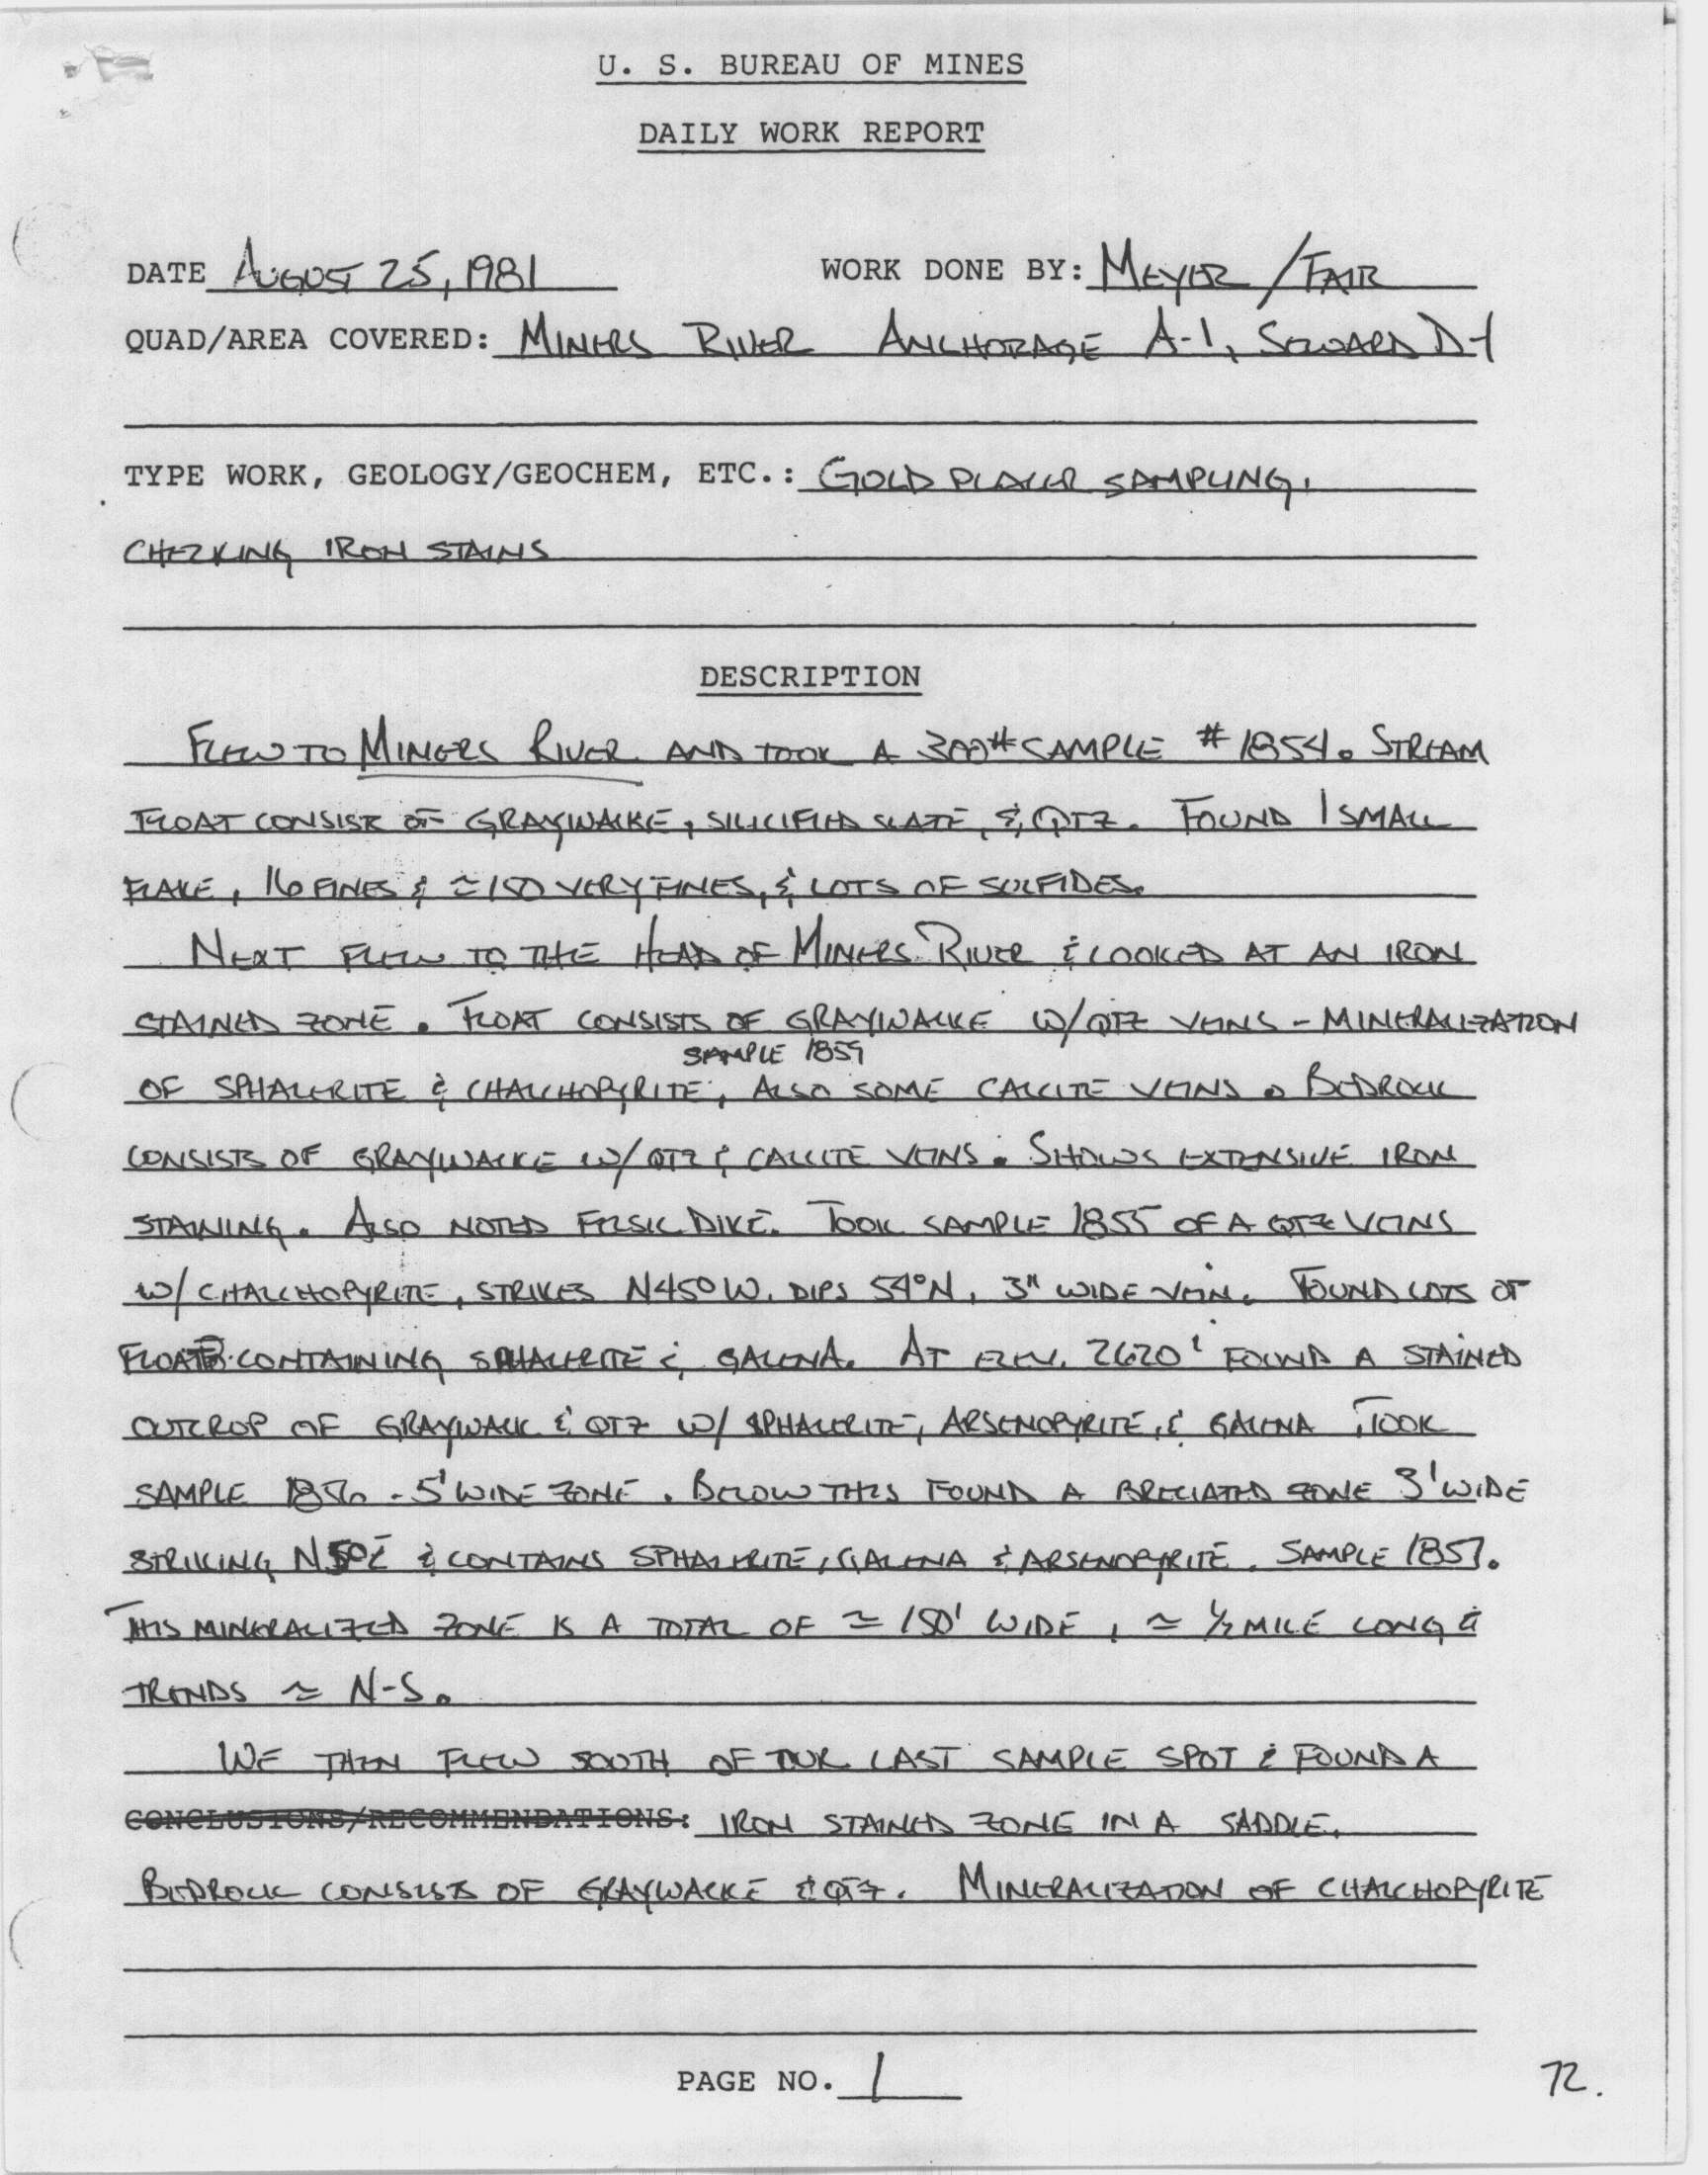 U. S. BUREAU OF MINES
DAILY WORK REPORT
DATE AUGUST 25, 1981 WORK DONE BY: MEYER / FAIR
QUAD/AREA COVERED: MINERS RIVER ANCHORAGE A-1, SEWARD D-1
TYPE WORK, GEOLOGY/GEOCHEM, ETC.: GOLD PLACER SAMPLING,
CHECKING IRON STAINS
DESCRIPTION
FLEW TO MINERS RIVER AND TOOK A 300# SAMPLE # 1854. STREAM
FLOAT CONSIST OF GRAYWACKE, SILICIFIED SLATE, & QTZ. FOUND 1 SMALL
FLAKE, 16 FINES & ≈ 150 VERY FINES, & LOTS OF SULFIDES.
NEXT FLEW TO THE HEAD OF MINERS RIVER & LOOKED AT AN IRON
STAINED ZONE. FLOAT CONSISTS OF GRAYWACKE W/ QTZ VEINS - MINERALIZATION
SAMPLE 1859
OF SPHALERITE & CHALCHOPYRITE, ALSO SOME CALCITE VEINS. BEDROCK
CONSISTS OF GRAYWACKE W/ QTZ & CALCITE VEINS. SHOWS EXTENSIVE IRON
STAINING. ALSO NOTED FELSIC DIKE. TOOK SAMPLE 1855 OF A QTZ VEINS
W/ CHALCHOPYRITE, STRIKES N45°W, DIPS 54°N, 3" WIDE VEIN. FOUND LOTS OF
FLOAT CONTAINING SPHALERITE & GALENA. AT ELEV. 2620' FOUND A STAINED
OUTCROP OF GRAYWACK & QTZ W/ SPHALERITE, ARSENOPYRITE, & GALENA, TOOK
SAMPLE 1856 - 5' WIDE ZONE. BELOW THIS FOUND A BRECIATED ZONE 3' WIDE
STRIKING N5°E & CONTAINS SPHALERITE, GALENA & ARSENOPYRITE. SAMPLE 1857.
THIS MINERALIZED ZONE IS A TOTAL OF ≈ 150' WIDE, ≈ 1/2 MILE LONG &
TRENDS ≈ N-S.
WE THEN FLEW SOUTH OF OUR LAST SAMPLE SPOT & FOUND A
CONCLUSIONS/RECOMMENDATIONS: IRON STAINED ZONE IN A SADDLE.
BEDROCK CONSISTS OF GRAYWACKE & QTZ. MINERALIZATION OF CHALCHOPYRITE
PAGE NO. 1
72.